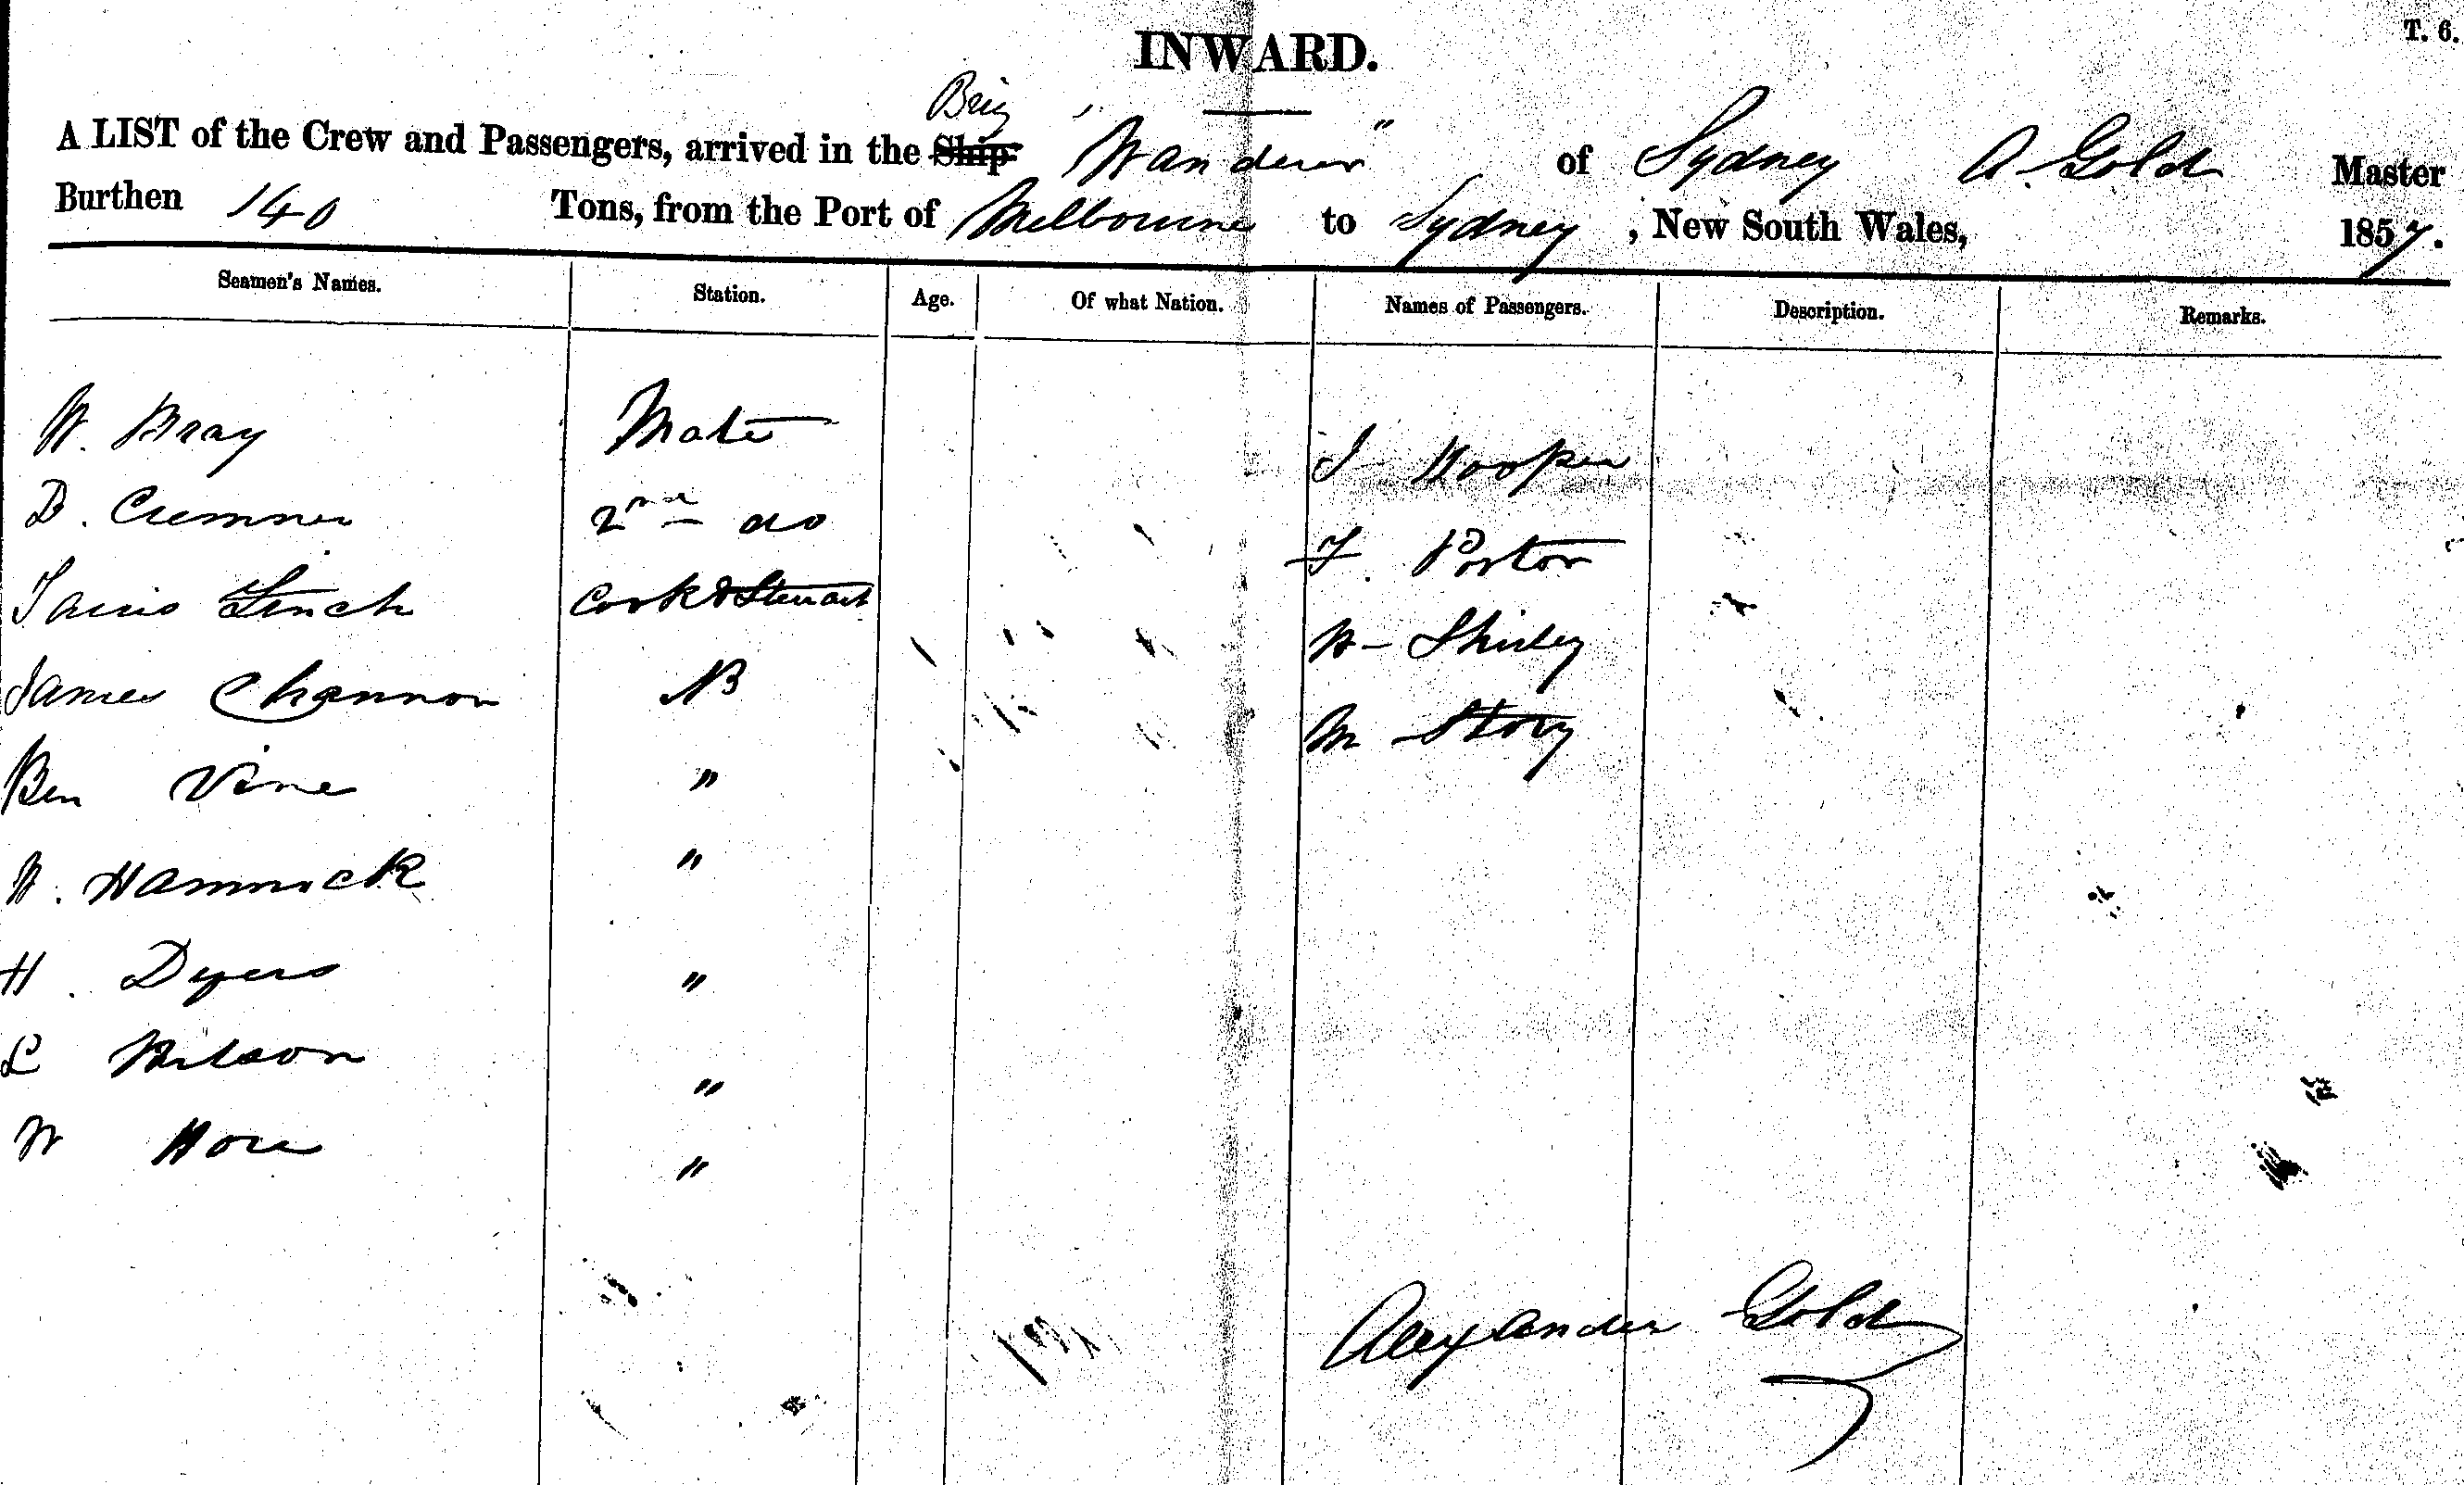 T. 6.
INWARD.
Brig
A LIST of the Crew and Passengers, arrived in the Ship "Wanderer" of Sydney A. Gold Master
Burthen 140 Tons, from the Port of Melbourne to Sydney, New South Wales, 1857.
Seamen's Names. Station. Age. Of what Nation. Names of Passengers. Description. Remarks.
W. Bray Mate
J Hooper
D. Cremner 2nd do
F. Porter
Cook & Steward
W Shirley
James Channon AB
M Story
Ben Vine "
W. Hammick "
H. Dyers "
L Wilson "
W Hore "
Alexander Gold